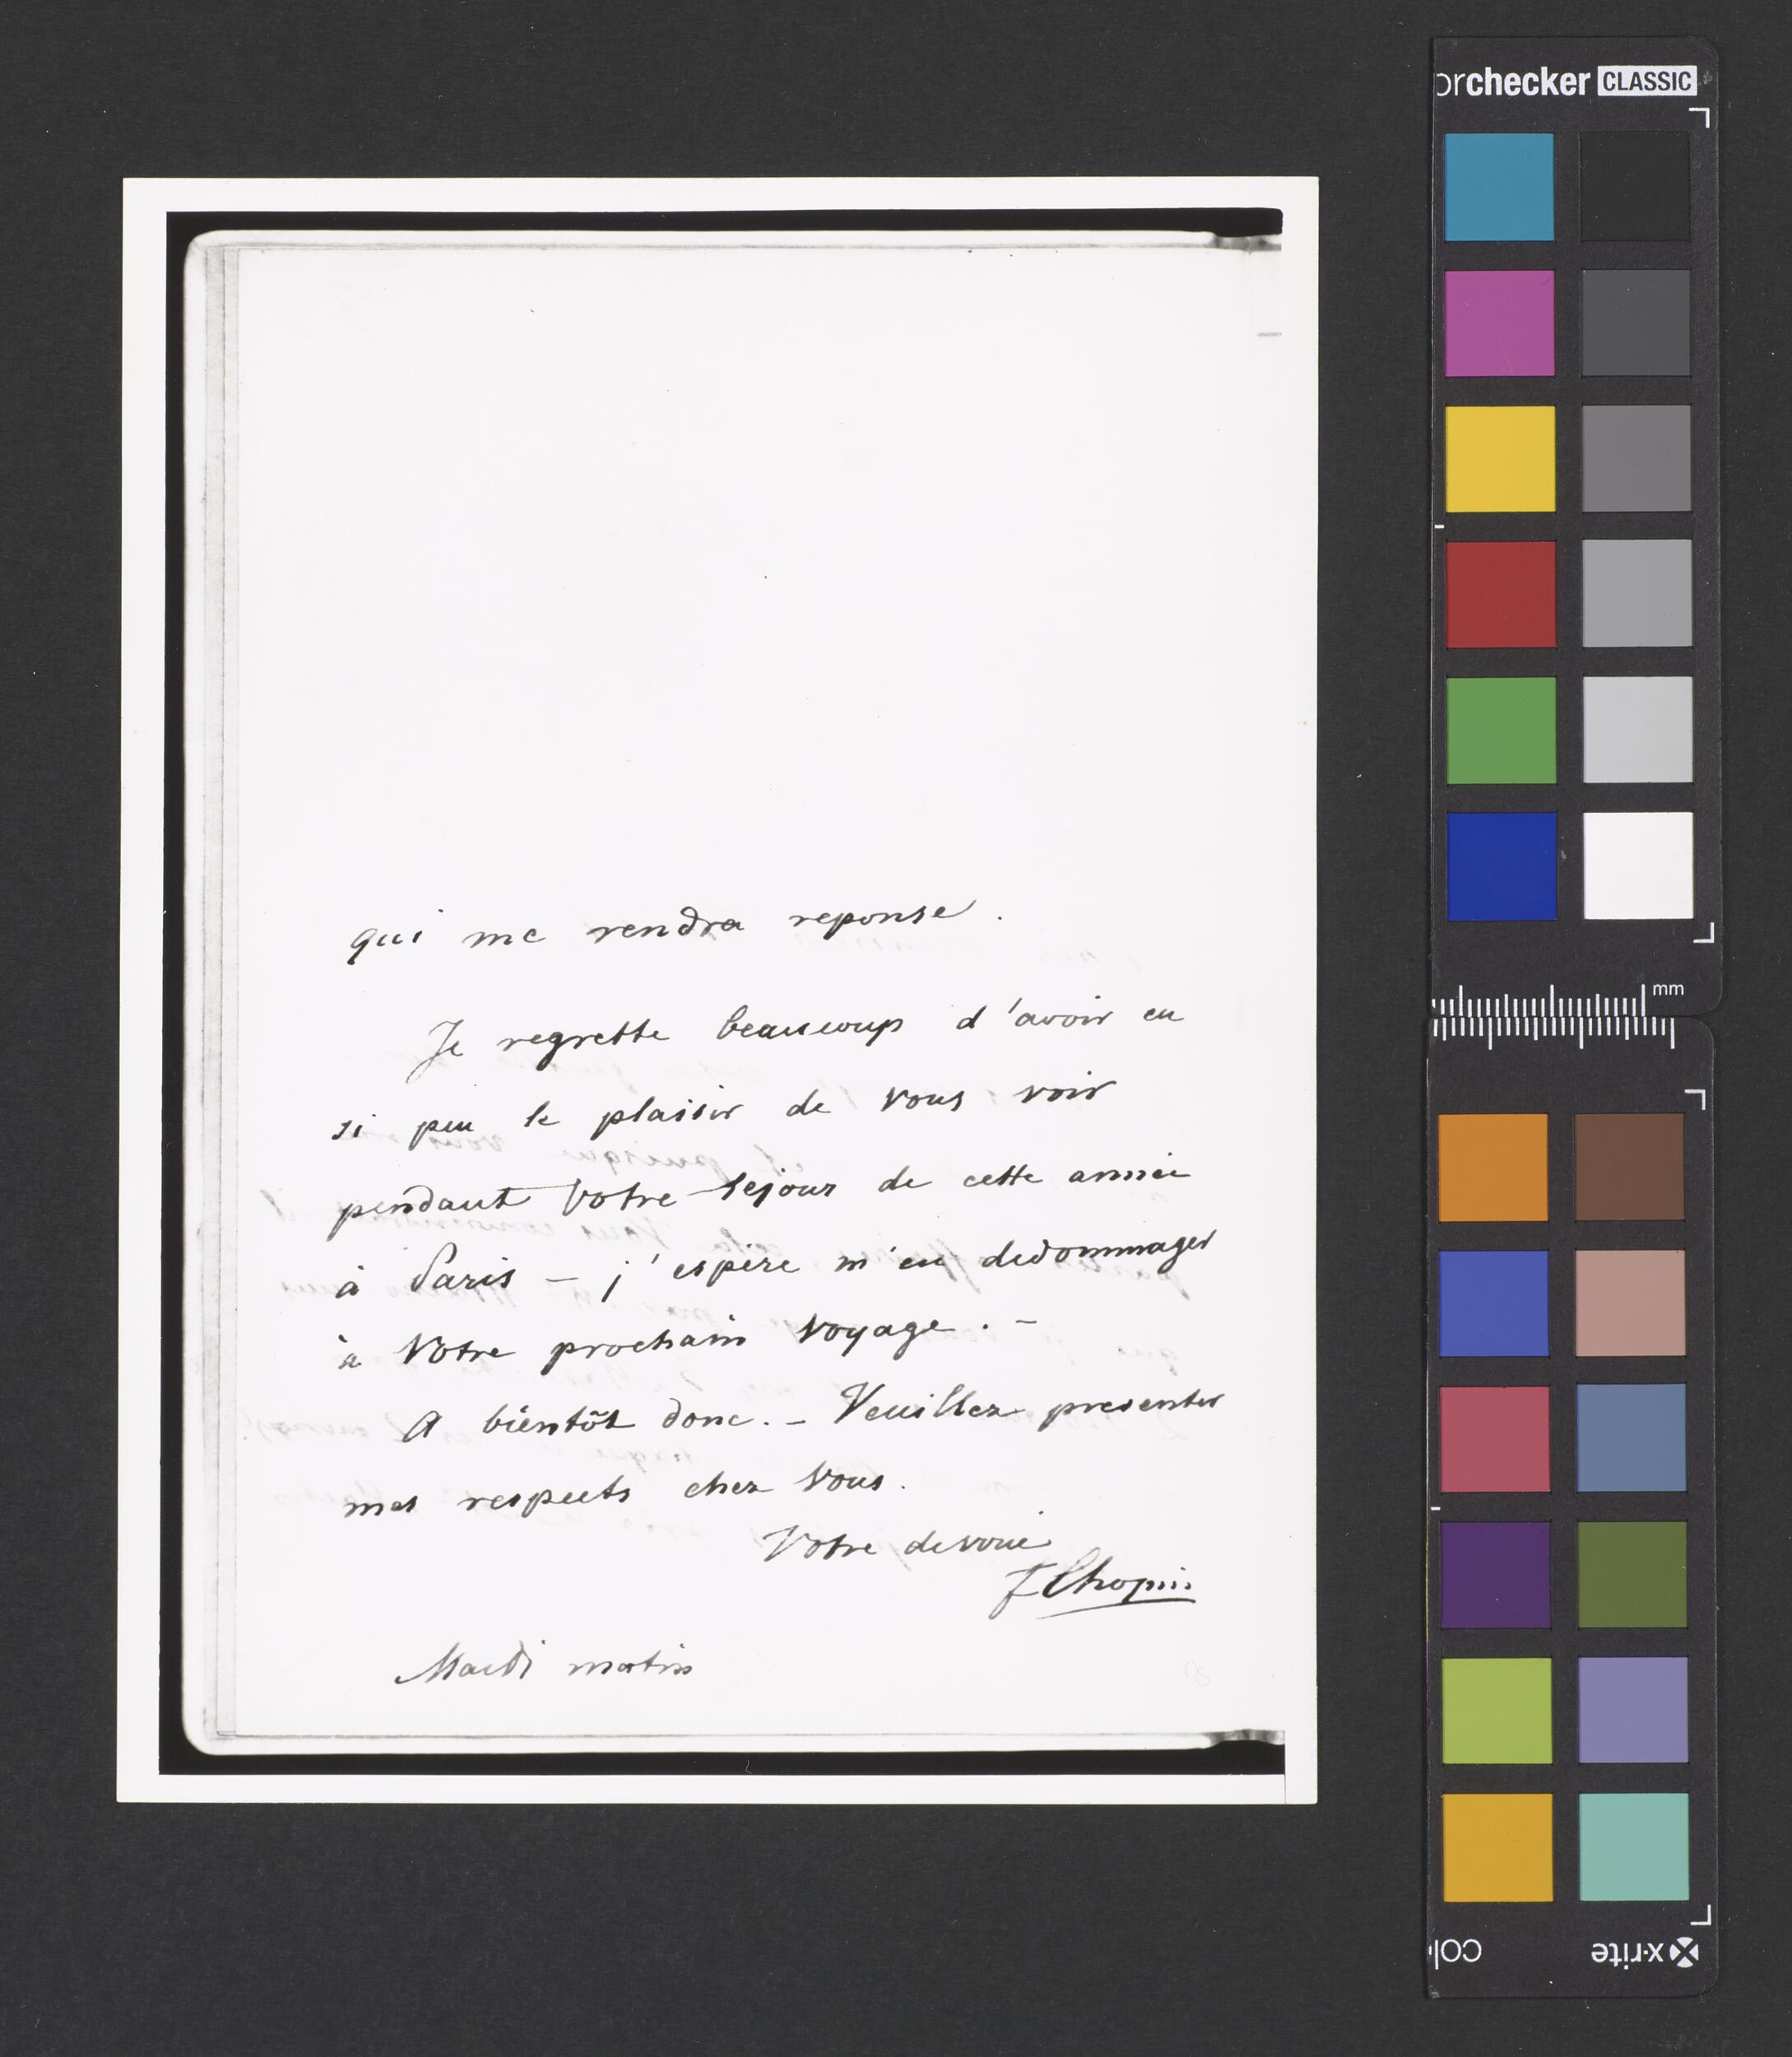 qui me rendra reponse.
Je regrette beaucoup d'avoir eu
si peu le plaisir de vous voir
pendant Votre sejour de cette année
à Paris – j'espère m'en dedommager
à Votre prochain voyage. –
A bientôt donc. – Veuillez presenter
mes respects chez Vous.
Votre devoué
FChopin
Mardi matin
orchecker CLASSIC
mm
x·rite
col